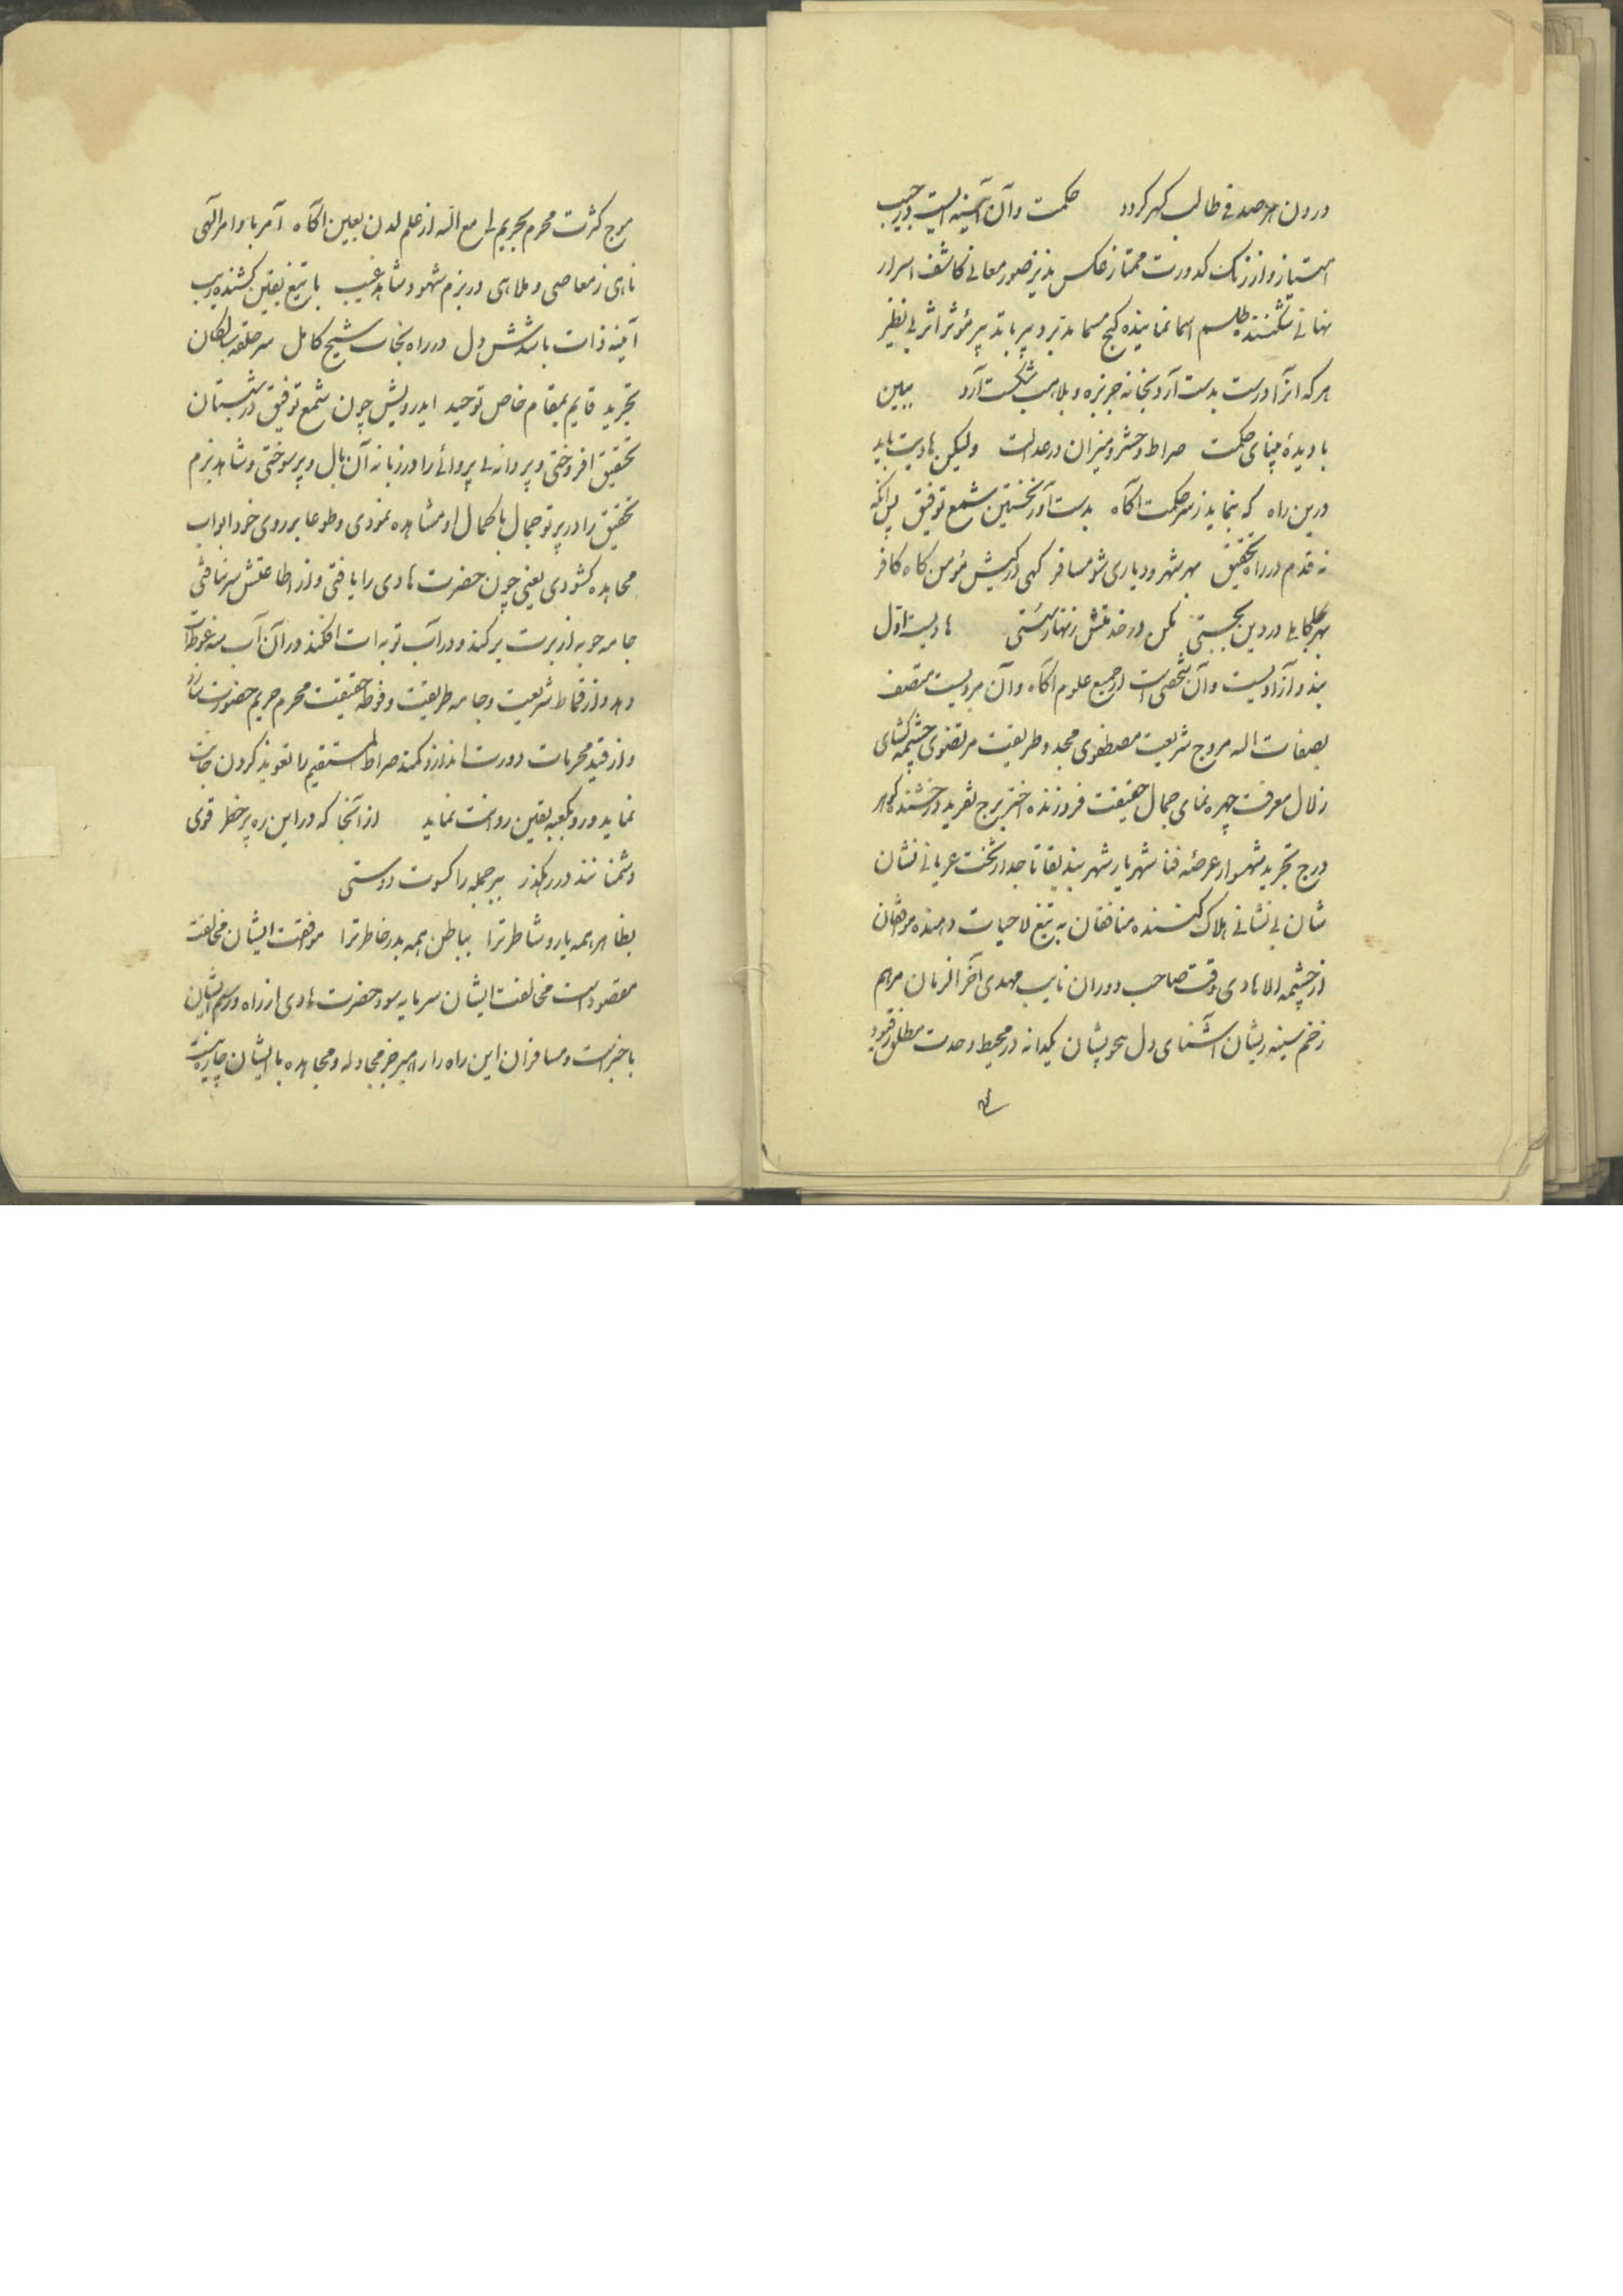 درون هر صدفی طالب گهر گردد حکمت و آن آینه ایست در جیب
امتیاز و از زنگ کدورت ممتاز عکس پذیر صور معانی کاشف اسرار
نهانی شکننده طلسم اسما نماینده گنج مسما مدبر و پیر با تدبیر مؤثر اثر بی نظیر
هر که آنرا درست بدست آرد بخانه جربزه و بلاهت شکست آرد ببین
با دیدهٔ بینای حکمت صراط و حشر و میزان در عدالت ولیکن هادیت باید
درین راه که بنماید ز سر حکمت آگاه بدست آور نخستین شمع توفیق پس آنگه
نه قدم در راه تحقیق بهر شهر و دیاری شو مسافر گهی در کیش مؤمن گاه کافر
بهر جا کاملی در دین بجستی مکن در خدمتش زنهار سستی هادیست اول
بنده آزادیست و آن شخصی است از جمیع علوم آگاه و آن مردیست متصف
بصفات اله مروج شریعت مصطفوی مجدد طریقت مرتضوی چشمه گشای
زلال معرفت چهره نمای جمال حقیقت فروزنده اختر برج تفرید درخشنده گوهر
درج تجرید شهسوار عرصه فنا شهریار شهر بند بقا تاجدار تخت عریانی نشان
شان بی نشانی هلاک کننده منافقان به تیغ لا حیات دهنده موافقان
از چشمه الا هادی وقت صاحب دوران نایب مهدی آخر الزمان مرهم
زخم سینه ریشان آشنای دل بیخویشان یکدانه در محیط وحدت مطلق از قیود
موج کثرت محرم بحریم لی مع الله از علم لدن بعین آگاه آمر باوامر الهی
ناهی ز معاصی و ملاهی در بزم شهود شاهد غیب با تیغ یقین کشنده ریب
آینه ذات باشدش دل در راه نجات شیخ کامل سر حلقه سالکان
تجرید قایم بمقام خاص توحید ایدرویش چون شمع توفیق در شبستان
تحقیق افروختی و پروانه بی پروائی را در زبانه آن بال و پر سوختی و شاهد بزم
تحقیق را در پرتو جمال با کمال او مشاهده نمودی و طوعا بر روی خود ابواب
مجاهده گشودی یعنی چون حضرت هادی را یافتی و از اطاعتش سر نتافتی
جامه حوبه از برت برکند و در آب توبه ات افکند و در آن آب سه غوطه ات
دهد و از قماط شریعت و جامه طریقت و فوطه حقیقت محرم حریم حضورت سازد
و از قید محرمات دورت اندازد و کمند صراط المستقیم را تعویذ گردن جانت
نماید و رو بکعبه یقین روانت نماید از آنجا که در این ره پر خطر قوی
دشمنانند در رهگذر ببر جمله را کسوت دوستی
بظاهر همه یار و شاطر ترا بباطن همه بدر خاطر ترا موافقت ایشان مخالفت
مقصود است مخالفت ایشان سرمایه سود حضرت هادی از راه و رسم ایشان
با خبر است و مسافران این راه را راهبر جز مجادله و مجاهده با ایشان چاره نیست